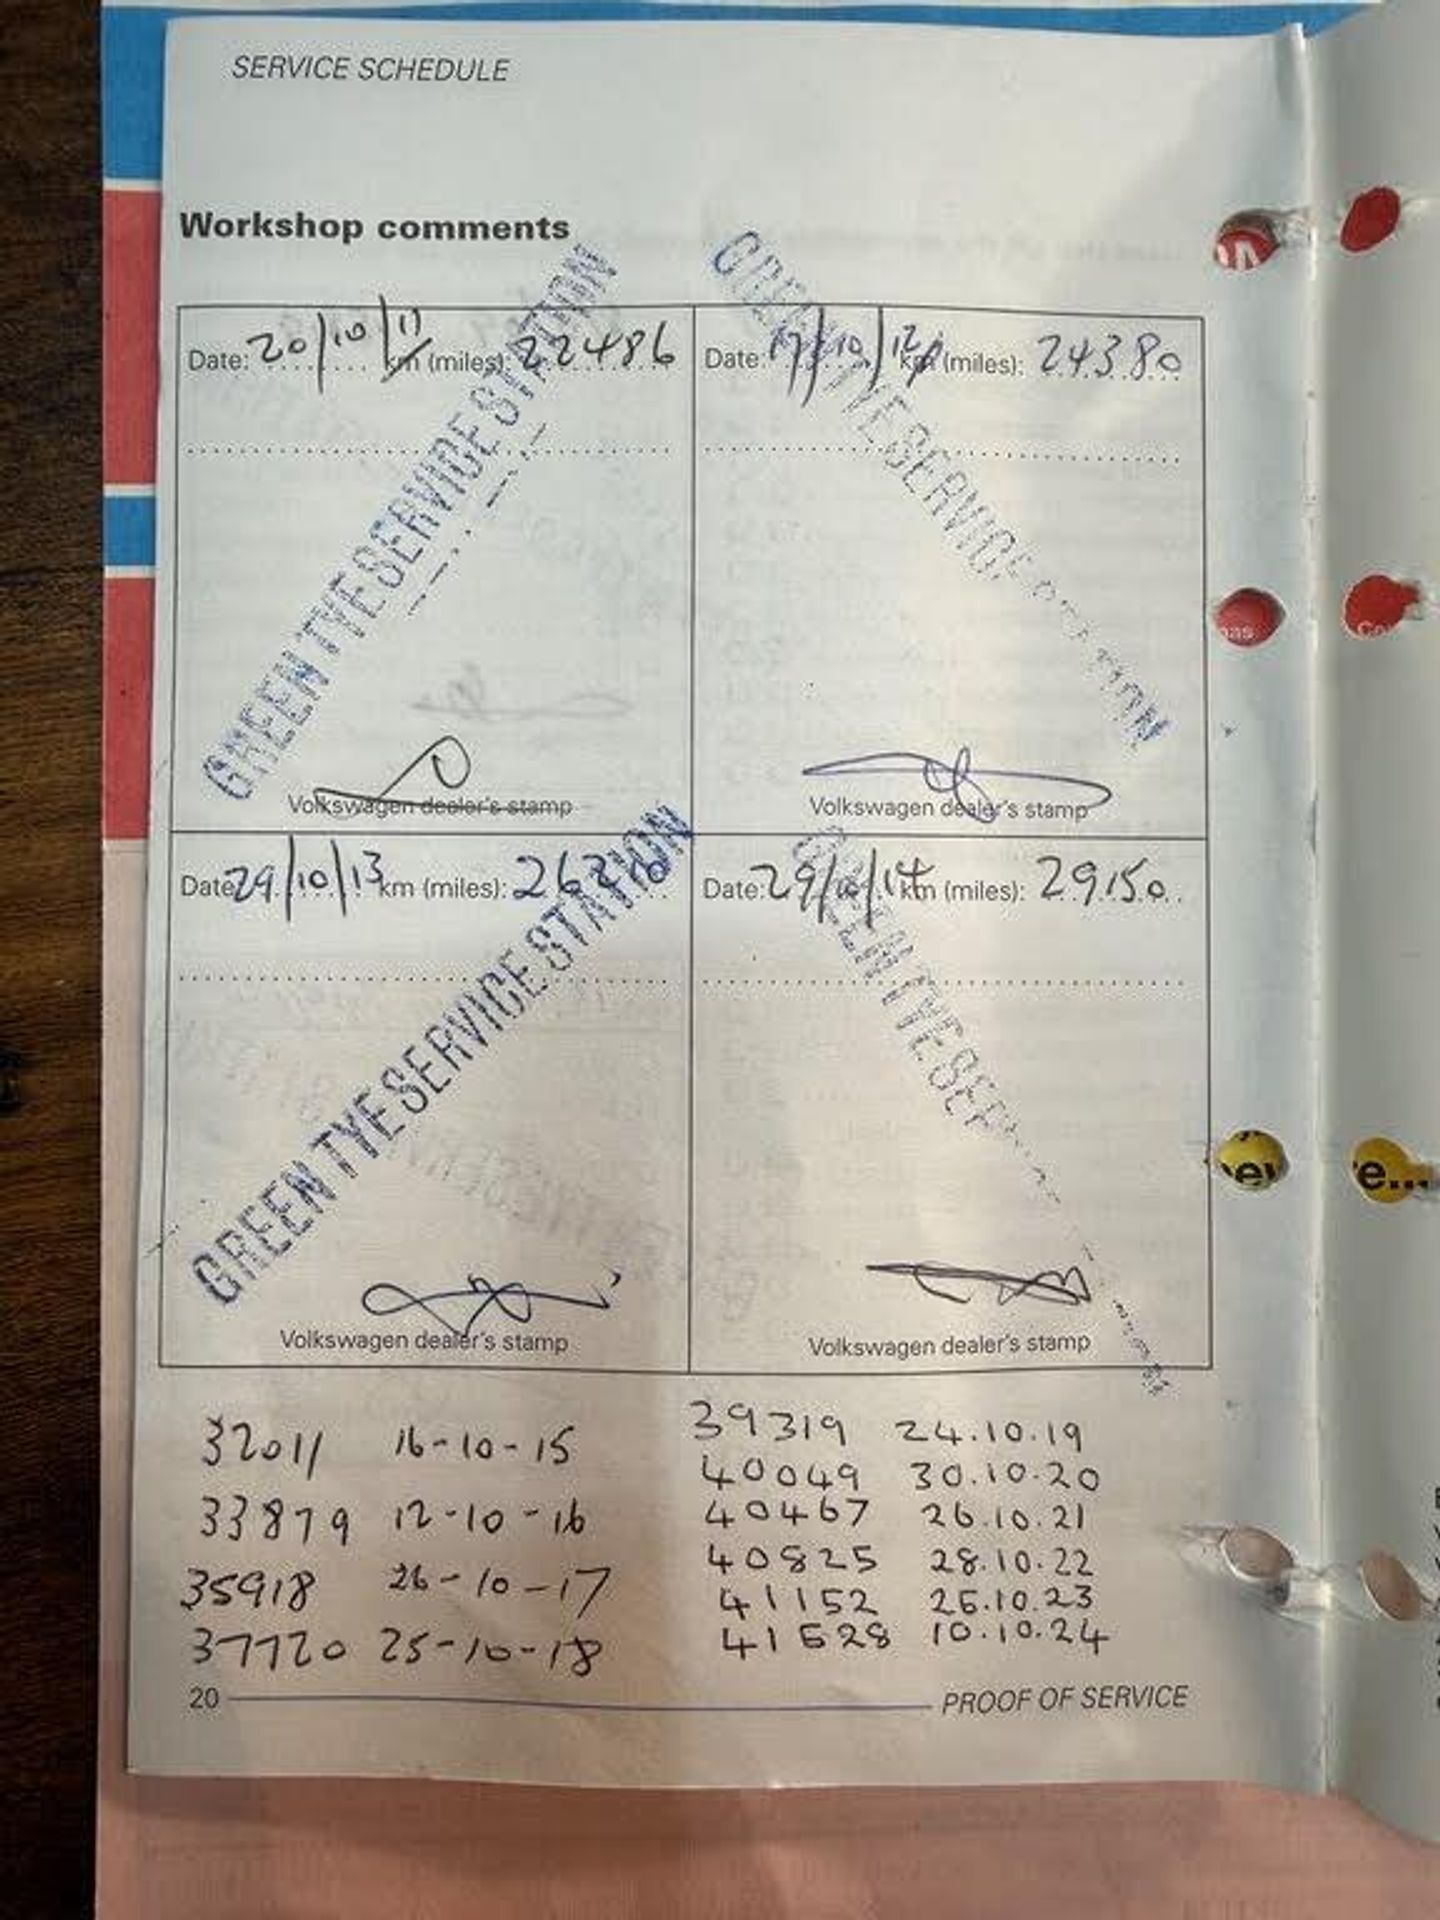 SERVICE SCHEDULE
Workshop comments
Date: 20/10/11 km (miles): 22486
GREEN TYE SERVICE STATION
Volkswagen dealer's stamp
Date: 17/10/12 km (miles): 24380
GREEN TYE SERVICE STATION
Volkswagen dealer's stamp
Date: 29/10/13 km (miles):
GREEN TYE SERVICE STATION
Volkswagen dealer's stamp
Date: 29/10/14 km (miles): 29150
GREEN TYE
Volkswagen dealer's stamp
32011 16-10-15
33879 12-10-16
35918 26-10-17
37720 25-10-18
39319 24.10.19
40049 30.10.20
40467 26.10.21
40825 28.10.22
41152 25.10.23
41528 10.10.24
20 PROOF OF SERVICE